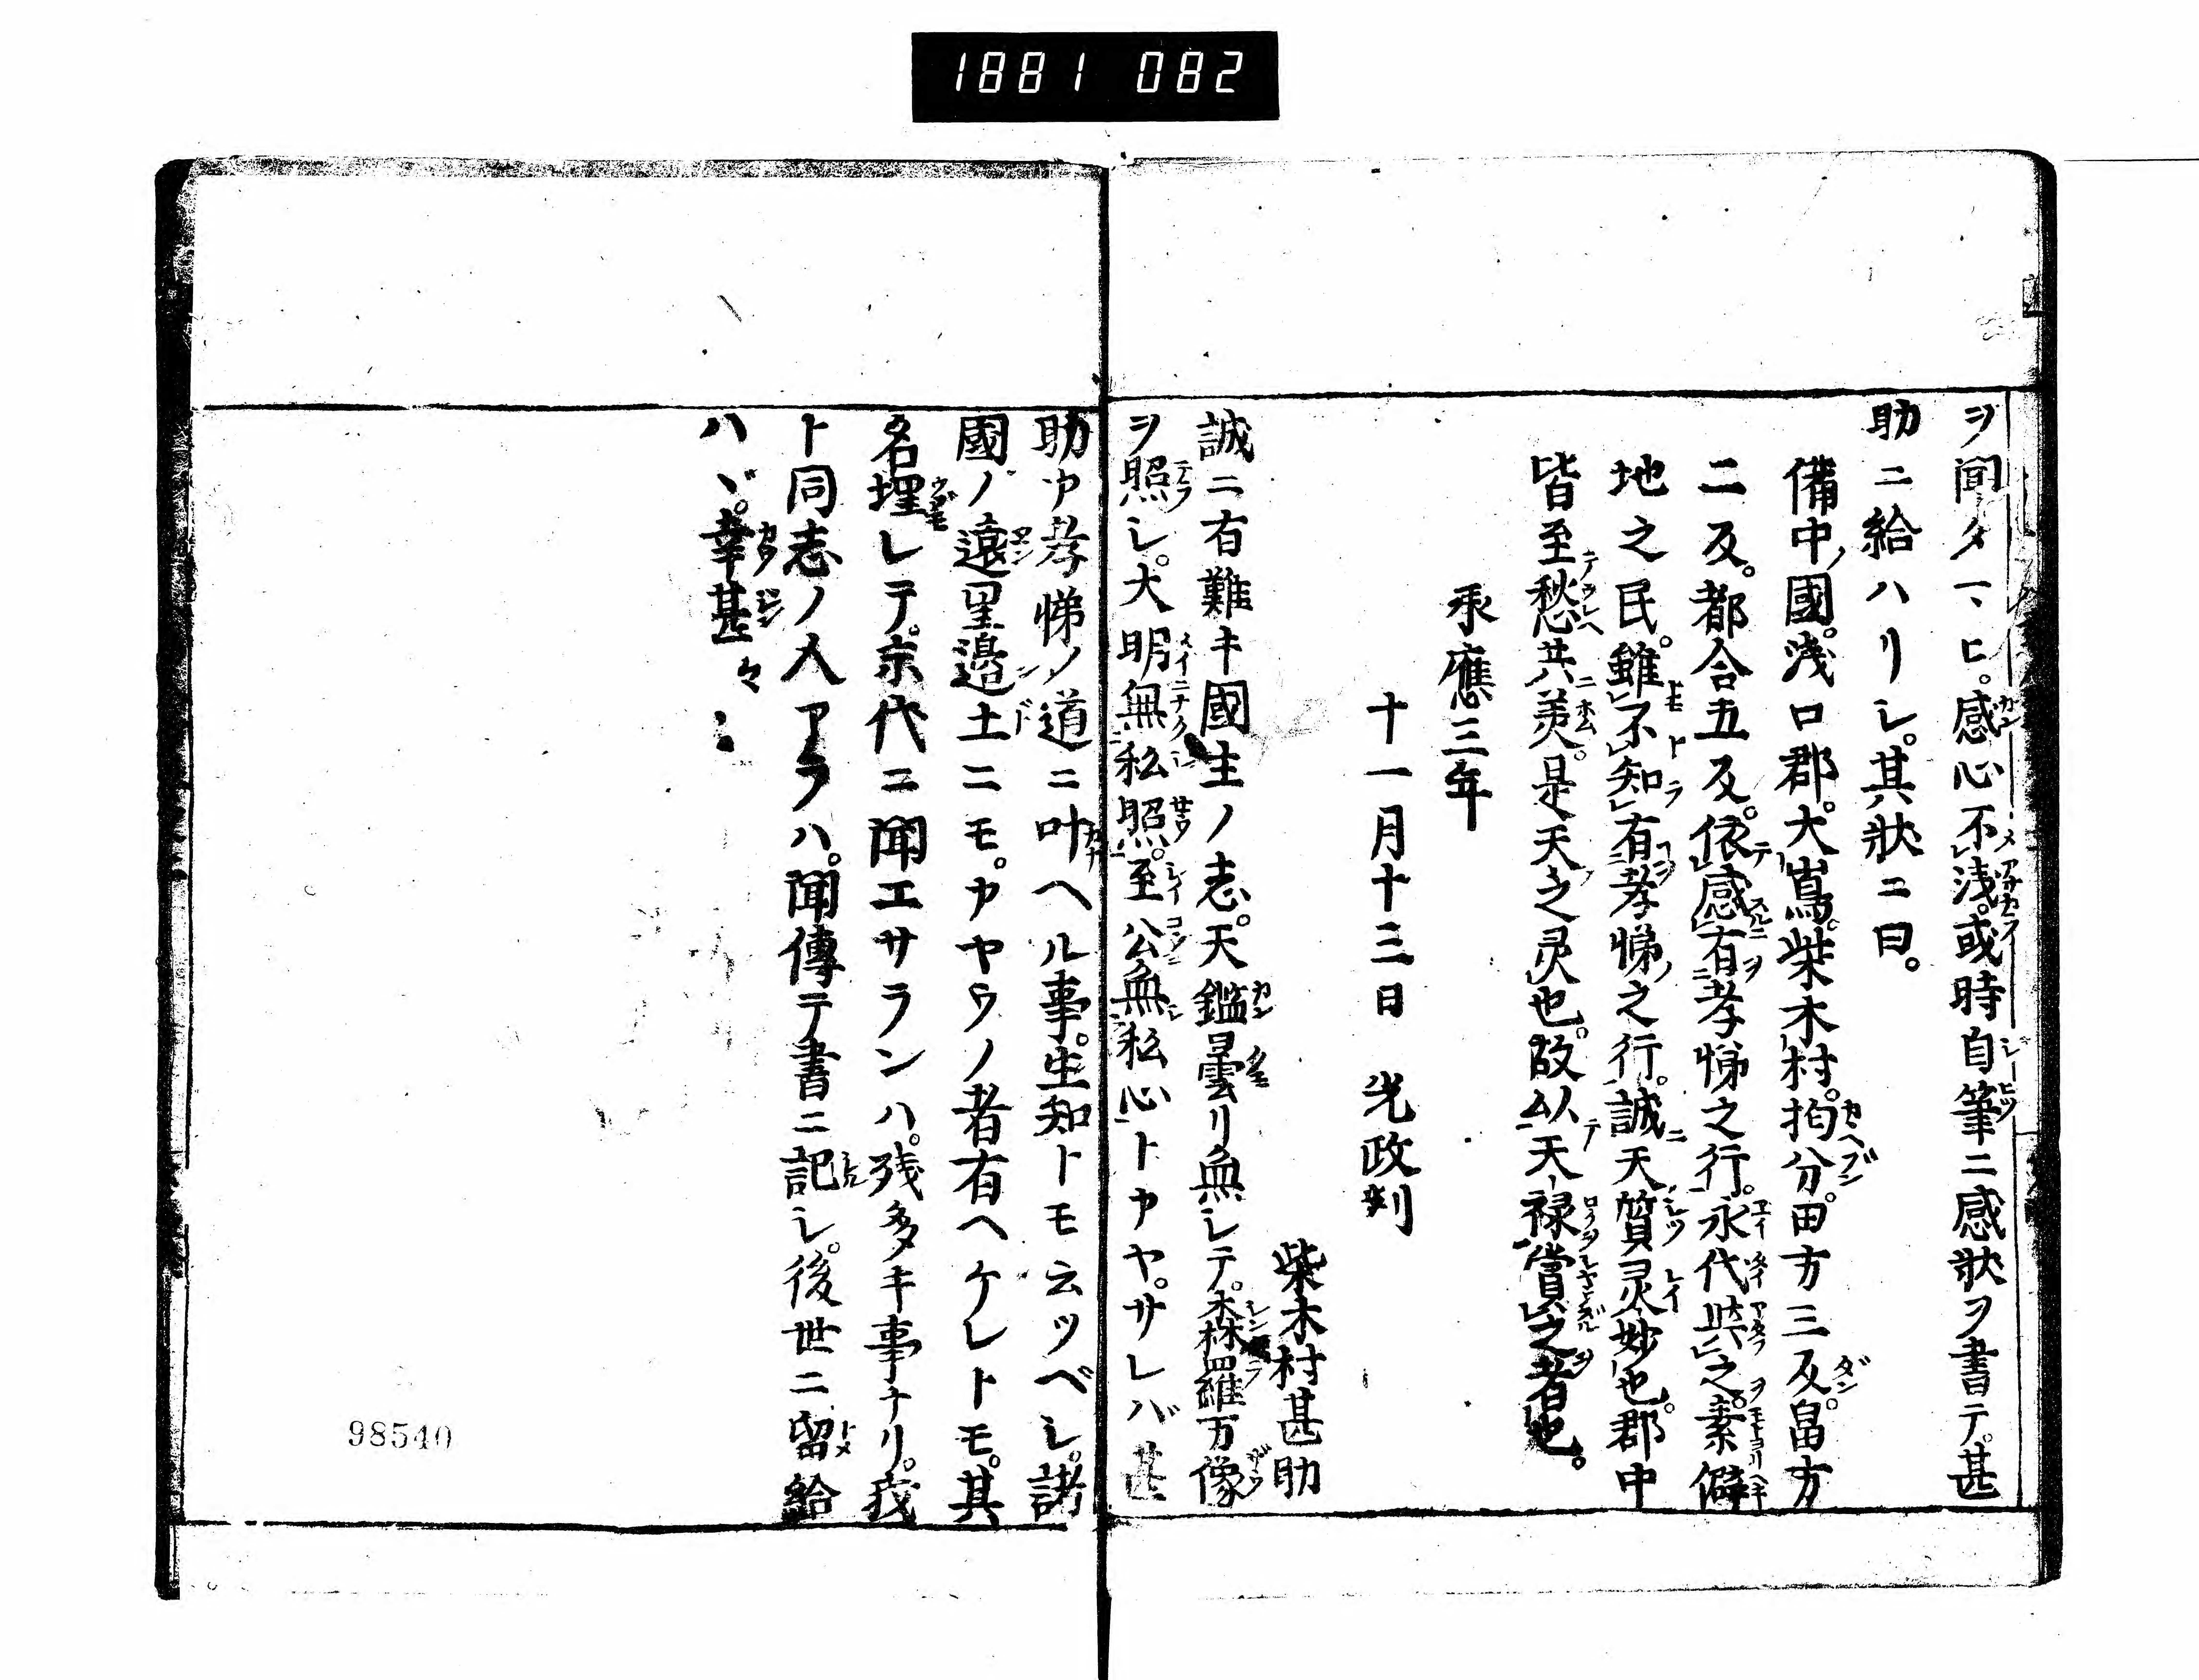 1881 082
ヲ聞タマヒ。感心不浅。或時自筆ニ感狀ヲ書テ。甚
助ニ給ハリシ。其狀ニ曰。
備中國。浅口郡。大嶌。柴木村。拘分。田方三反。畠方
二反。都合五反。依感有孝悌之行。永代与之。素僻
地之民。雖不知有孝悌之行。誠天質灵妙也。郡中
皆至愁共美。是天之灵也。故以天禄賞之者也。
承應三年
十一月十三日 光政判
柴木村甚助
誠ニ有難キ國主ノ志。天鑑曇リ無シテ。森羅万像
ヲ照シ。大明無私照。至公無私心トカヤ。サレバ甚
助カ孝悌ノ道ニ叶ヘル事。生知トモ云ツベシ。諸
國ノ遠里邊土ニモ。カヤウノ者有ヘケレトモ。其
名埋レテ。京代ニ聞エサランハ。残多キ事ナリ。我
ト同志ノ人アラハ。聞傳テ書ニ記シ。後世ニ留給
ハヾ。幸甚々々
98540